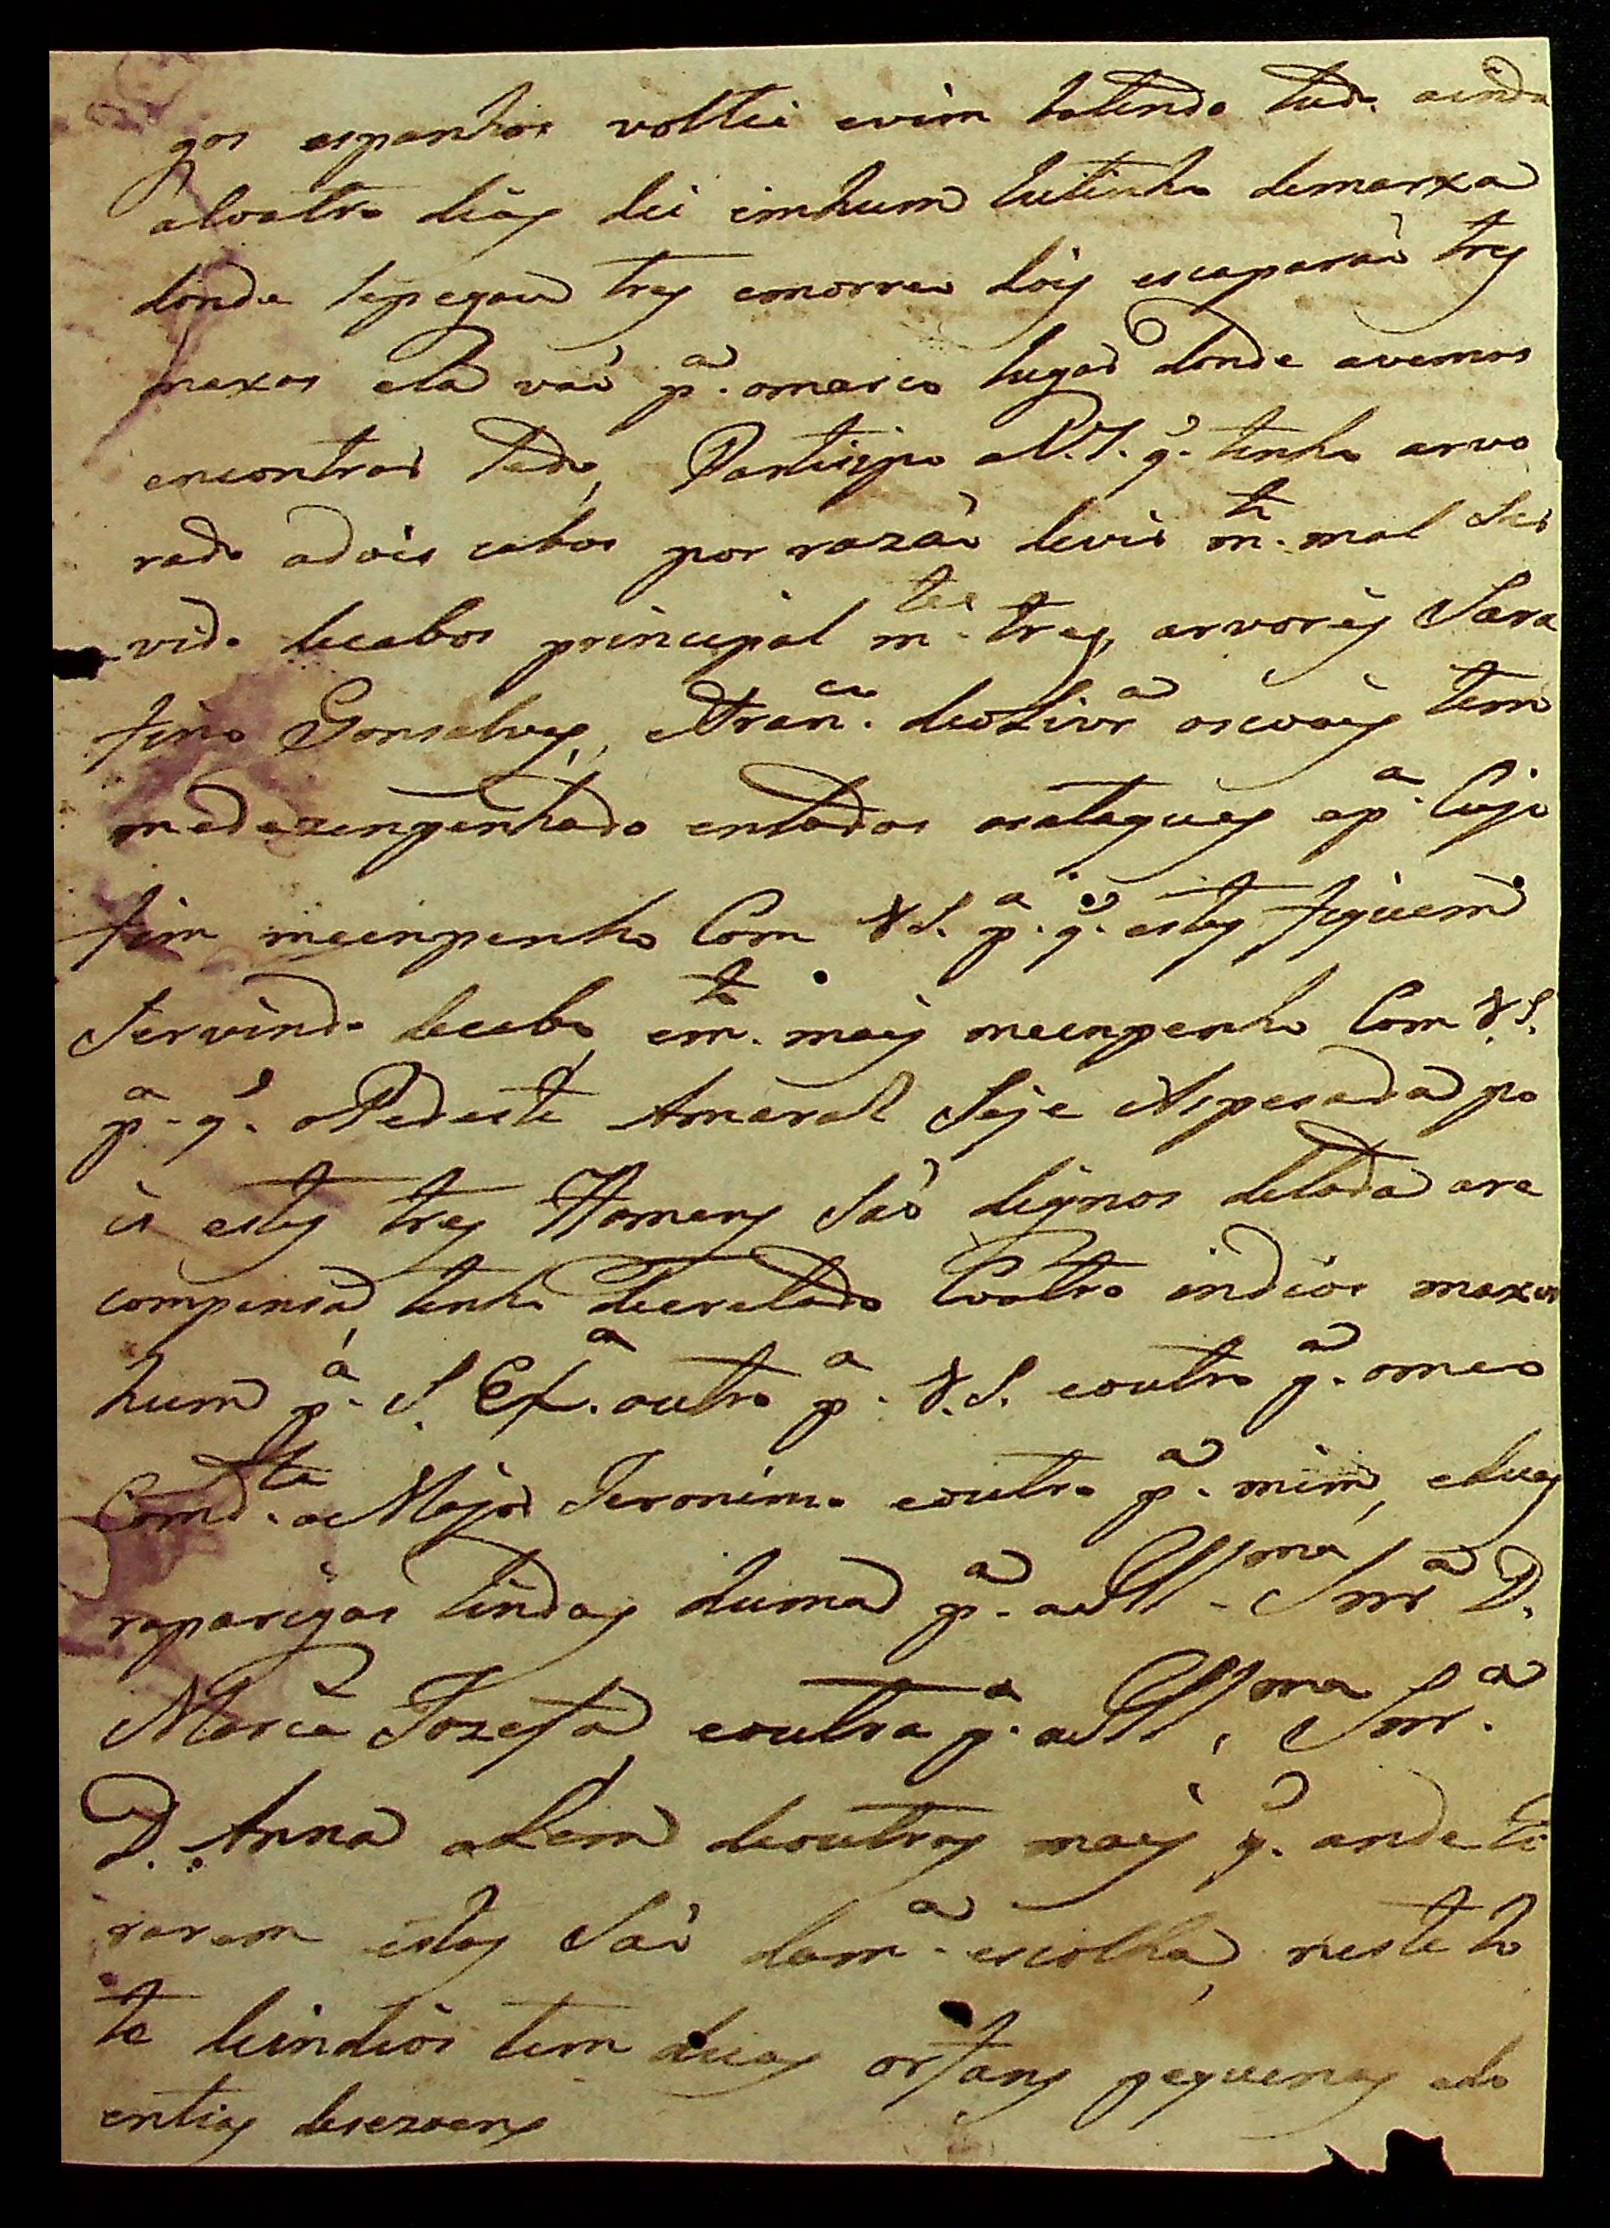 gos espanhos voltei evim batendo tudo ainda
alcoatro dias dei imhum lutinho demarxa
donde sepegou tres emorreo dois escaparaõ tres
maxos ela vaõ p.ª omarco lugar donde avemos
encontrar tudo, Partisipo aV.S. q.̃ tenho arvo
rado adois cabos por razaõ devir m.to mal Ser
vido decabos principal m.te tres, arvorej Sara
fino Gonsalves, eFran.co deoLivr.a oscoais tem
medezenpenhado entodos osataques ep.ª Cujo
fim meenpenho Com VS. p.ª q.̃ estes fiquem
Servindo decabo, em.to mais meenpenho Com V.S.
p.ª q.̃ oPedeste Amaral Seje Aspesada po
is estes tres Homens Saõ dignos detoda are
compensa, tenho decretado Coatro indios maxos
hum p.ª S. Ex.ª outro p.ª V.S. eoutro p.ª omeo
Comd.te oMajor Jeronimo eoutro p.ª mim, eduas
raparigas lindas huma p.ª aIll.ma Snr.ª D.
Maria Jozefa, eoutra p.ª aIll.ma Snr.ª
D. Anna aLem deoutras mais q.̃ ande ti
rarem estas Saõ dam.ª escolha, neste lo
te deindios tem duas orfans pequenas edo
entias desezoens